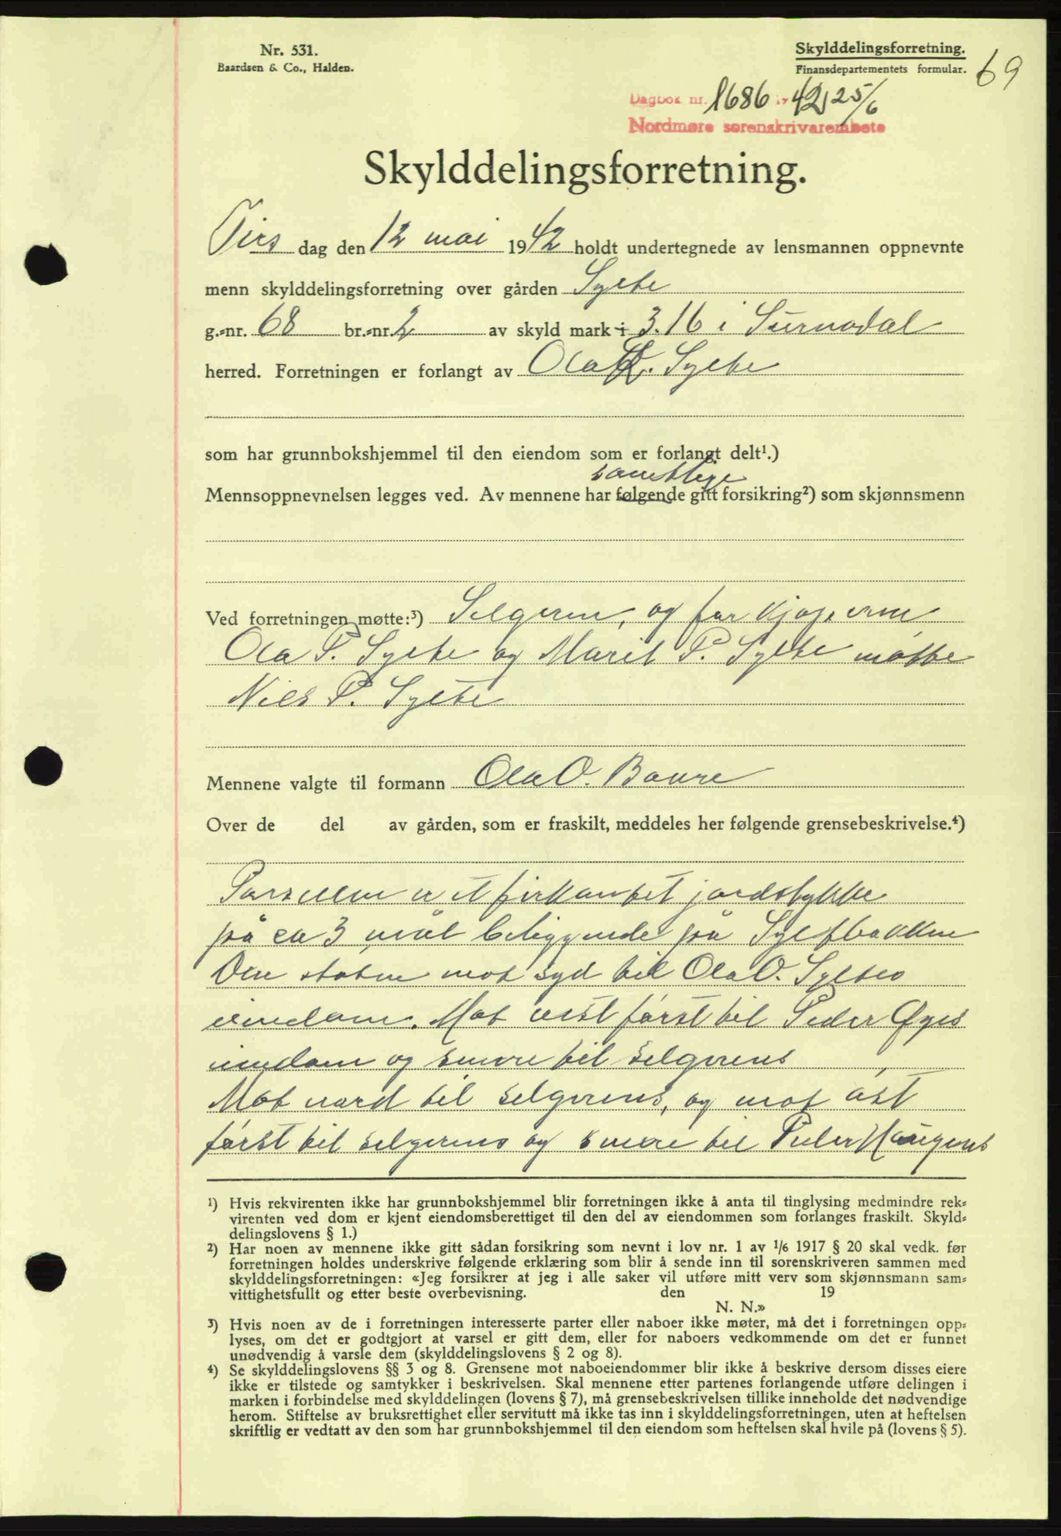 Nr. 531.
Baardsen & Co., Halden.
Skylddelingsforretning.
Finansdepartementets formular.
69
Dagbok nr. 1686 19 42, 25/6
Nordmøre sorenskrivarembete
Skylddelingsforretning.
Tirs dag den 12 mai 1942 holdt undertegnede av lensmannen oppnevnte
menn skylddelingsforretning over gården Sylte
g.=nr. 68 br.=nr. 2 av skyld mark 3.16 i Surnadal
herred. Forretningen er forlangt av Ola Sylte
som har grunnbokshjemmel til den eiendom som er forlangt delt¹.)
samtlige
Mennsoppnevnelsen legges ved. Av mennene har følgende gitt forsikring²) som skjønnsmenn
Ved forretningen møtte:³) Selgeren, og for kjøperne
Ola P. Sylte og Marit P. Sylte møtte
Nils P. Sylte
Mennene valgte til formann Ola O. Bævre
Over de del av gården, som er fraskilt, meddeles her følgende grensebeskrivelse.⁴)
Parsellen er et firkantet jordstykke
på ca 3 mål beliggende på Syltbakken
Den støter mot syd til Ola O. Syltes
eiendom. Mot vest først til Peder Øyes
eiendom og senere til selgerens
Mot nord til selgerens, og mot øst
først til selgerens og senere til Peder Haugens
¹) Hvis rekvirenten ikke har grunnbokshjemmel blir forretningen ikke å anta til tinglysing medmindre rek=
virenten ved dom er kjent eiendomsberettiget til den del av eiendommen som forlanges fraskilt. Skyld=
delingslovens § 1.)
²) Har noen av mennene ikke gitt sådan forsikring som nevnt i lov nr. 1 av 1/6 1917 § 20 skal vedk. før
forretningen holdes underskrive følgende erklæring som blir å sende inn til sorenskriveren sammen med
skylddelingsforretningen: «Jeg forsikrer at jeg i alle saker vil utføre mitt verv som skjønnsmann sam=
vittighetsfullt og etter beste overbevisning. den 19
N. N.»
³) Hvis noen av de i forretningen interesserte parter eller naboer ikke møter, må det i forretningen opp=
lyses, om det er godtgjort at varsel er gitt dem, eller for naboers vedkommende om det er funnet
unødvendig å varsle dem (skylddelingslovens § 2 og 8).
⁴) Se skylddelingslovens §§ 3 og 8. Grensene mot naboeiendommer blir ikke å beskrive dersom disses eiere
ikke er tilstede og samtykker i beskrivelsen. Skal mennene etter partenes forlangende utføre delingen i
marken i forbindelse med skylddelingen (lovens § 7), må grensebeskrivelsen tillike inneholde det nødvendige
herom. Stiftelse av bruksrettighet eller servitutt må ikke tas inn i skylddelingsforretningen, uten at heftelsen
skriftlig er vedtatt av den som har grunnbokshjemmel til den eiendom som heftelsen skal hvile på (lovens § 5).